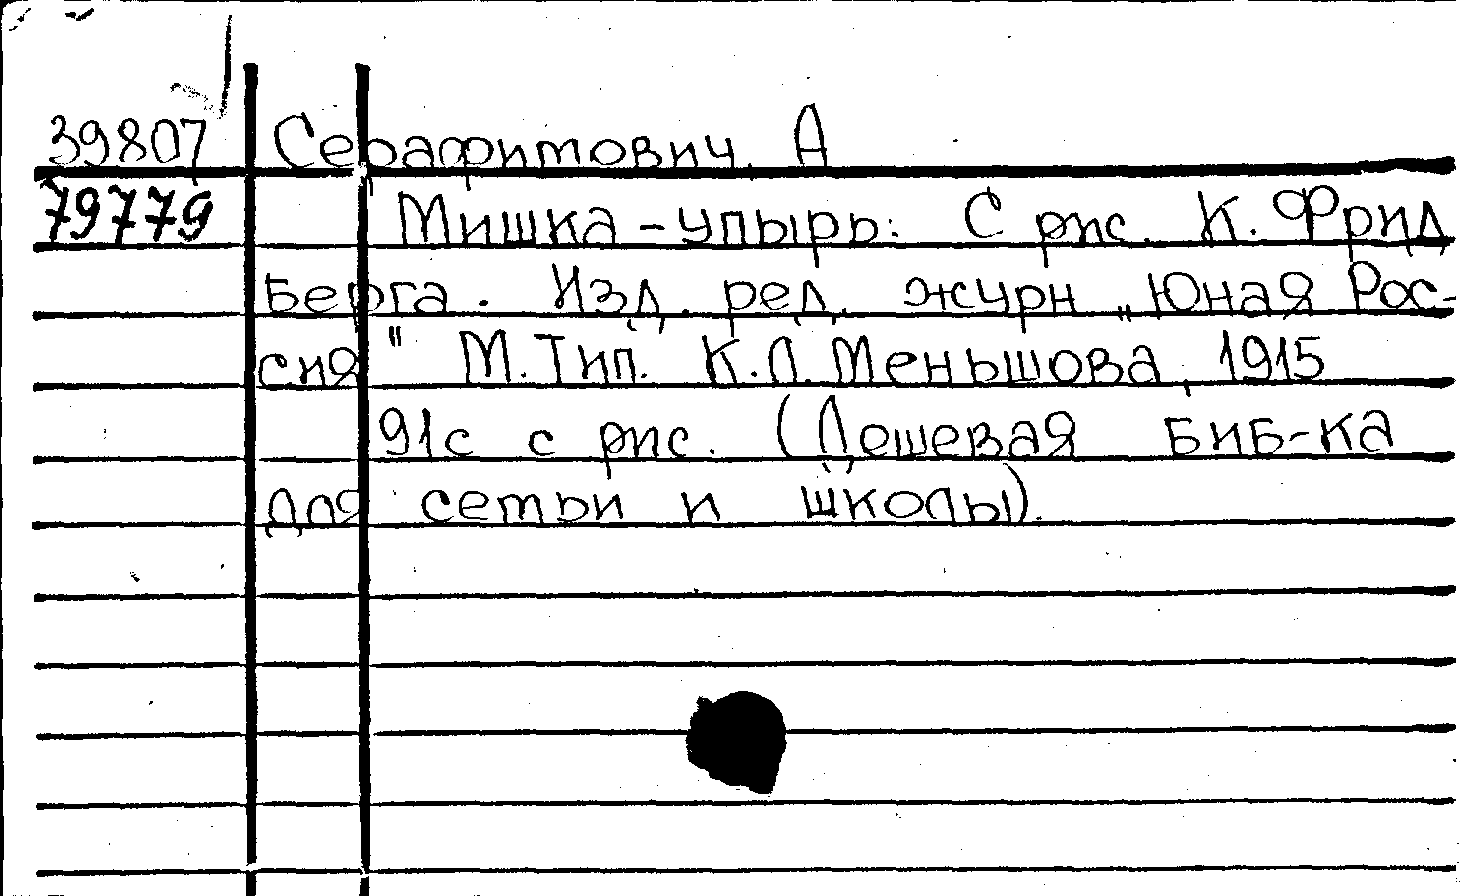 39807 Серафимович, А
79779 Мишка-упырь: С рис. К. Фрид
берга. Изд. ред. журн „Юная Рос-
сия" М. Тип. К.Л. Меньшова, 1915
91с с рис. (Дешевая биб-ка
для сетьи и школы).